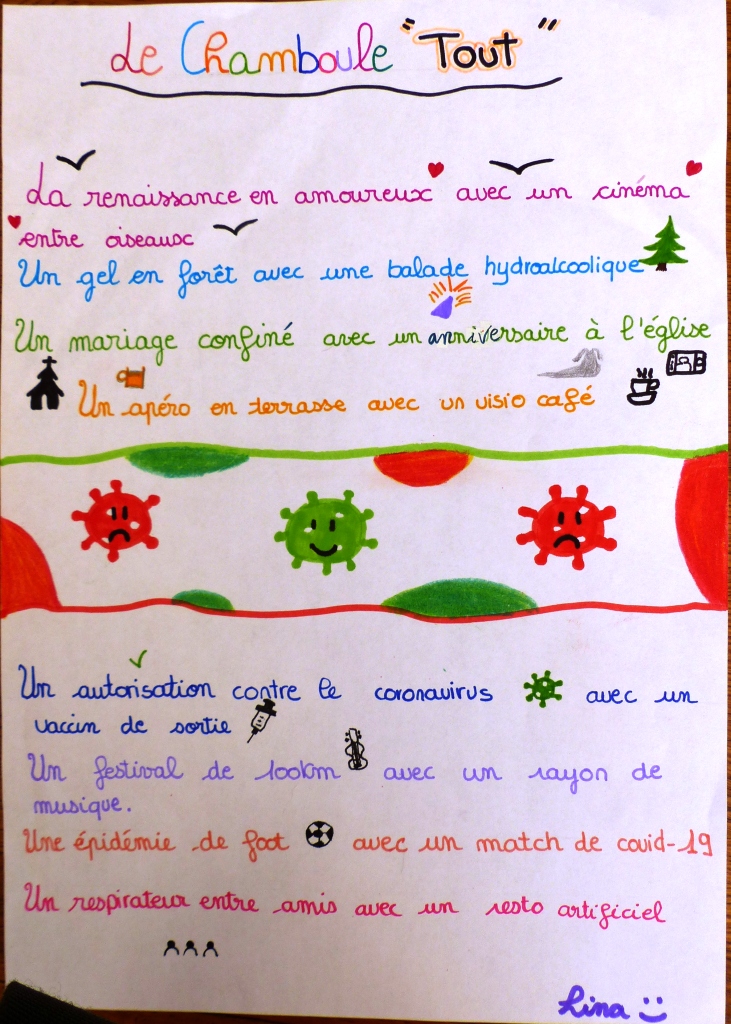 Le Chamboule "Tout"
La renaissance en amoureux avec un cinéma
entre oiseaux
Un gel en forêt avec une balade hydroalcoolique
Un mariage confiné avec un anniversaire à l'église
Un apéro en terrasse avec un visio café
Un autorisation contre le coronavirus avec un
vaccin de sortie
Un festival de 100km avec un rayon de
musique.
Une épidémie de foot avec un match de covid-19
Un respirateur entre amis avec un resto artificiel
Lina